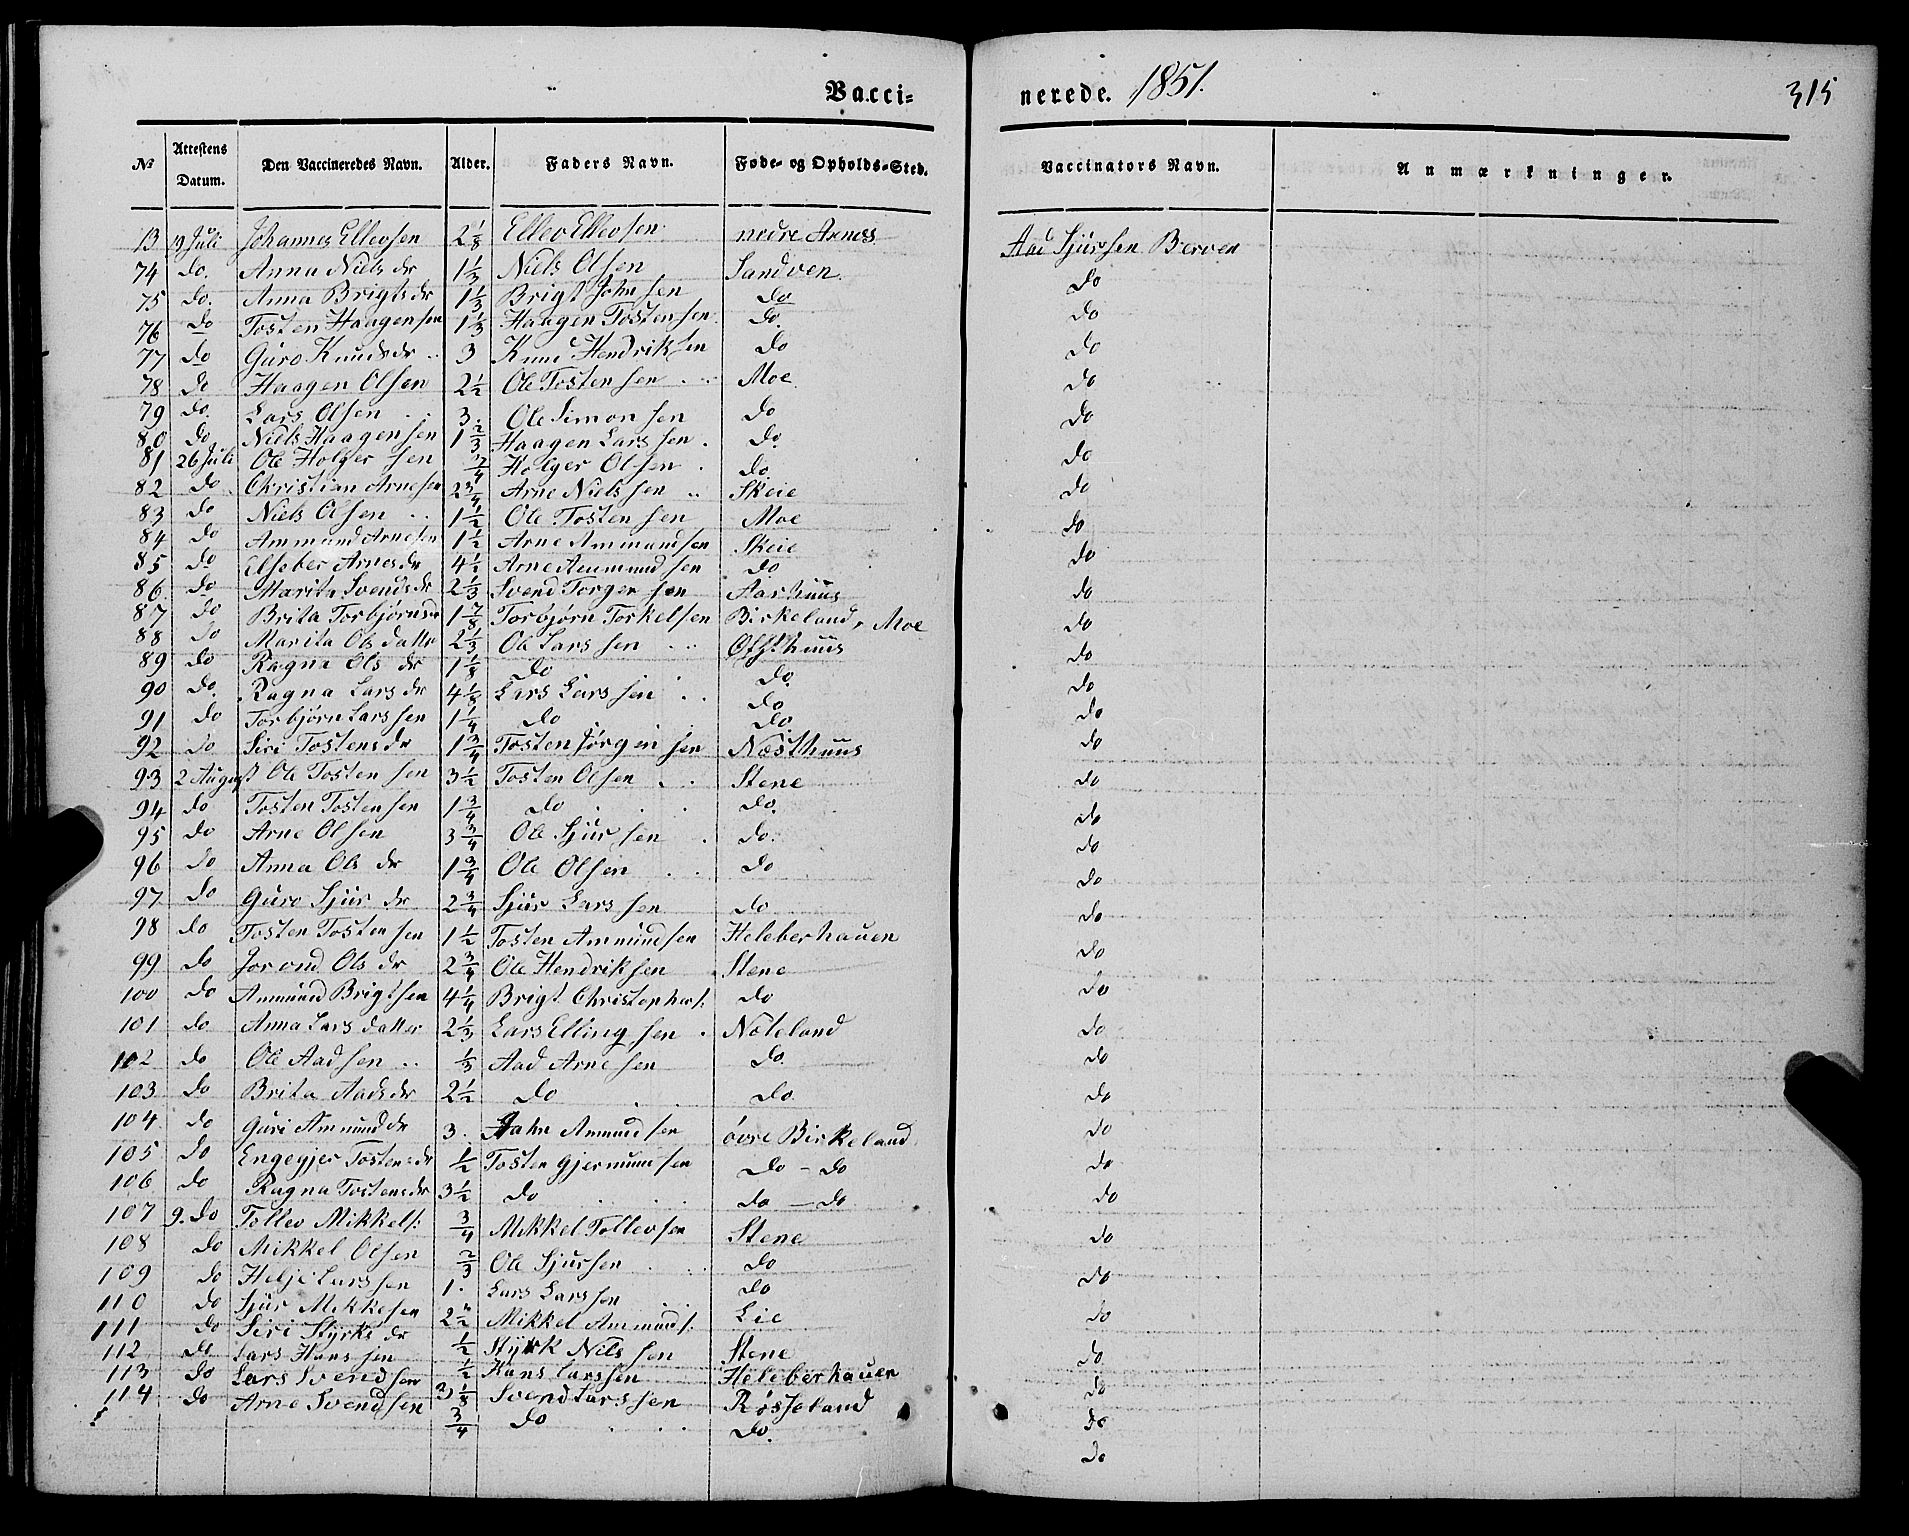 Vacci= nerede. 1851. 315
№ Attestens Datum. Den Vaccineredes Navn. Alder. Faders Navn. Føde- og Opholds-Sted. Vaccinators Navn. Anmærkninger.
13 19 Juli Johannes Ellevsen 2 1/8 Ellev Ellevsen nedre Arnes Aad Sjursen Berven
74 do. Anna Niels dr 1 1/3 Niels Olsen Sandven. do
75 do. Anna Brigts dr 1 1/3 Brigt Johnsen do do
76 do Tosten Haagensen 1 1/3 Haagen Tostensen do. do
77 do Guro Knudsdr .. 3 Knud Hendriksen do do
78 do Haagen Olsen 2 1/2 Ole Tostensen .. Moe do
79 do. Lars Olsen .. 3. Ole Simonsen do do
80 do Niels Haagensen 1 2/3 Haagen Larssen . do. do
81 26 Juli Ole Holgersen 3/4 Holger Olsen . do do
82 do Christian Arnesen 2 3/4 Arne Nielssen .. Skeie do
83 do Niels Olsen .. 1 1/2 Ole Tostensen Moe do
84 do Ammund Arnesen 1 1/2 Arne Ammundsen Skeie do
85 do Elseber Arnesdr 4 1/2 Arne Ammundsen do do
86 do Marita Svendsdr 2 1/3 Svend Torgersen Aarhuus do
87 do Brita Torbjørnsdr 1 7/8 Torbjørn Torkelsen Birkeland, Moe do
88 do Marita Olsdatter 2 1/3 Ole Larssen .. do
89 do Ragna Ols dr 1 1/8 do do. do
90 do. Ragna Lars dr 4 1/8 Lars Larssen . . do do
91 do Torbjørn Larssen 1 1/4 do do. do
92 do Siri Tostensdr 1 3/4 Tosten Jørgensen Næsthuus do
93 2 August Ole Tostensen 3 1/2 Tosten Olsen . . Stene do
94 do Tosten Tostensen 1 3/4 do . . do. do
95 do Arne Olsen 3 3/4 Ole Sjursen . do. do
96 do Anna Ols dr 1 3/4 Ole Olsen . . do do
97 do Guro Sjur dr 2 3/4 Sjur Larssen do do
98 do Tosten Tostensen 1 1/2 Tosten Ammundsen Heleberhauen do
99 do Jorond Ols dr 2 3/4 Ole Hendriksen Stene do
100 do Ammund Brigtsen 4 1/4 Brigt Christophers: do do
101 do Anna Larsdatter 2 1/3 Lars Ellingsen . Noteland do
102 do Ole Aadsen .. 1/3 Aad Arnesen do. do
103 do Brita Aadsdr 2 1/2 do . . do. do
104 do Guri Ammundsdr 3. Jahn Ammundsen øvre Birkeland. do
105 do Engegjer Tostensdr 1/2 Tosten Gjermundsen do - do do
106 do Ragna Tostensdr 3 1/2 do . . do - do do
107 9. do Tollev Mikkels: 3/4 Mikkel Tollevsen Stene do
108 do Mikkel Olsen 2/3 Ole Sjursen . . do do
109 do Helje Larssen 1. Lars Larssen do do
110 do Sjur Mikkelsen Mikkel Ammunds: Lie do
111 do Siri Styrks dr 1/2 Styrk Nilssen Stene do
112 do Lars Hanssen 1/2 Hans Larssen Heleberhauen do
113 do Lars Svendsen 3 1/8 Svend Larssen Røsseland do
114 do Arne Svendsen 3/4 do . . . do. do
do